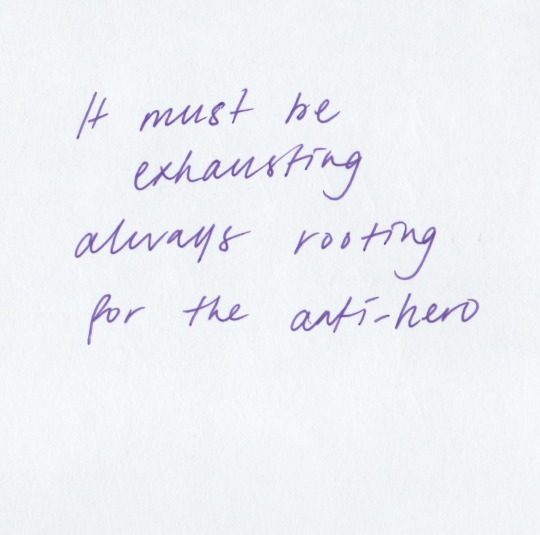 It must be
exhausting
always rooting
for the anti-hero